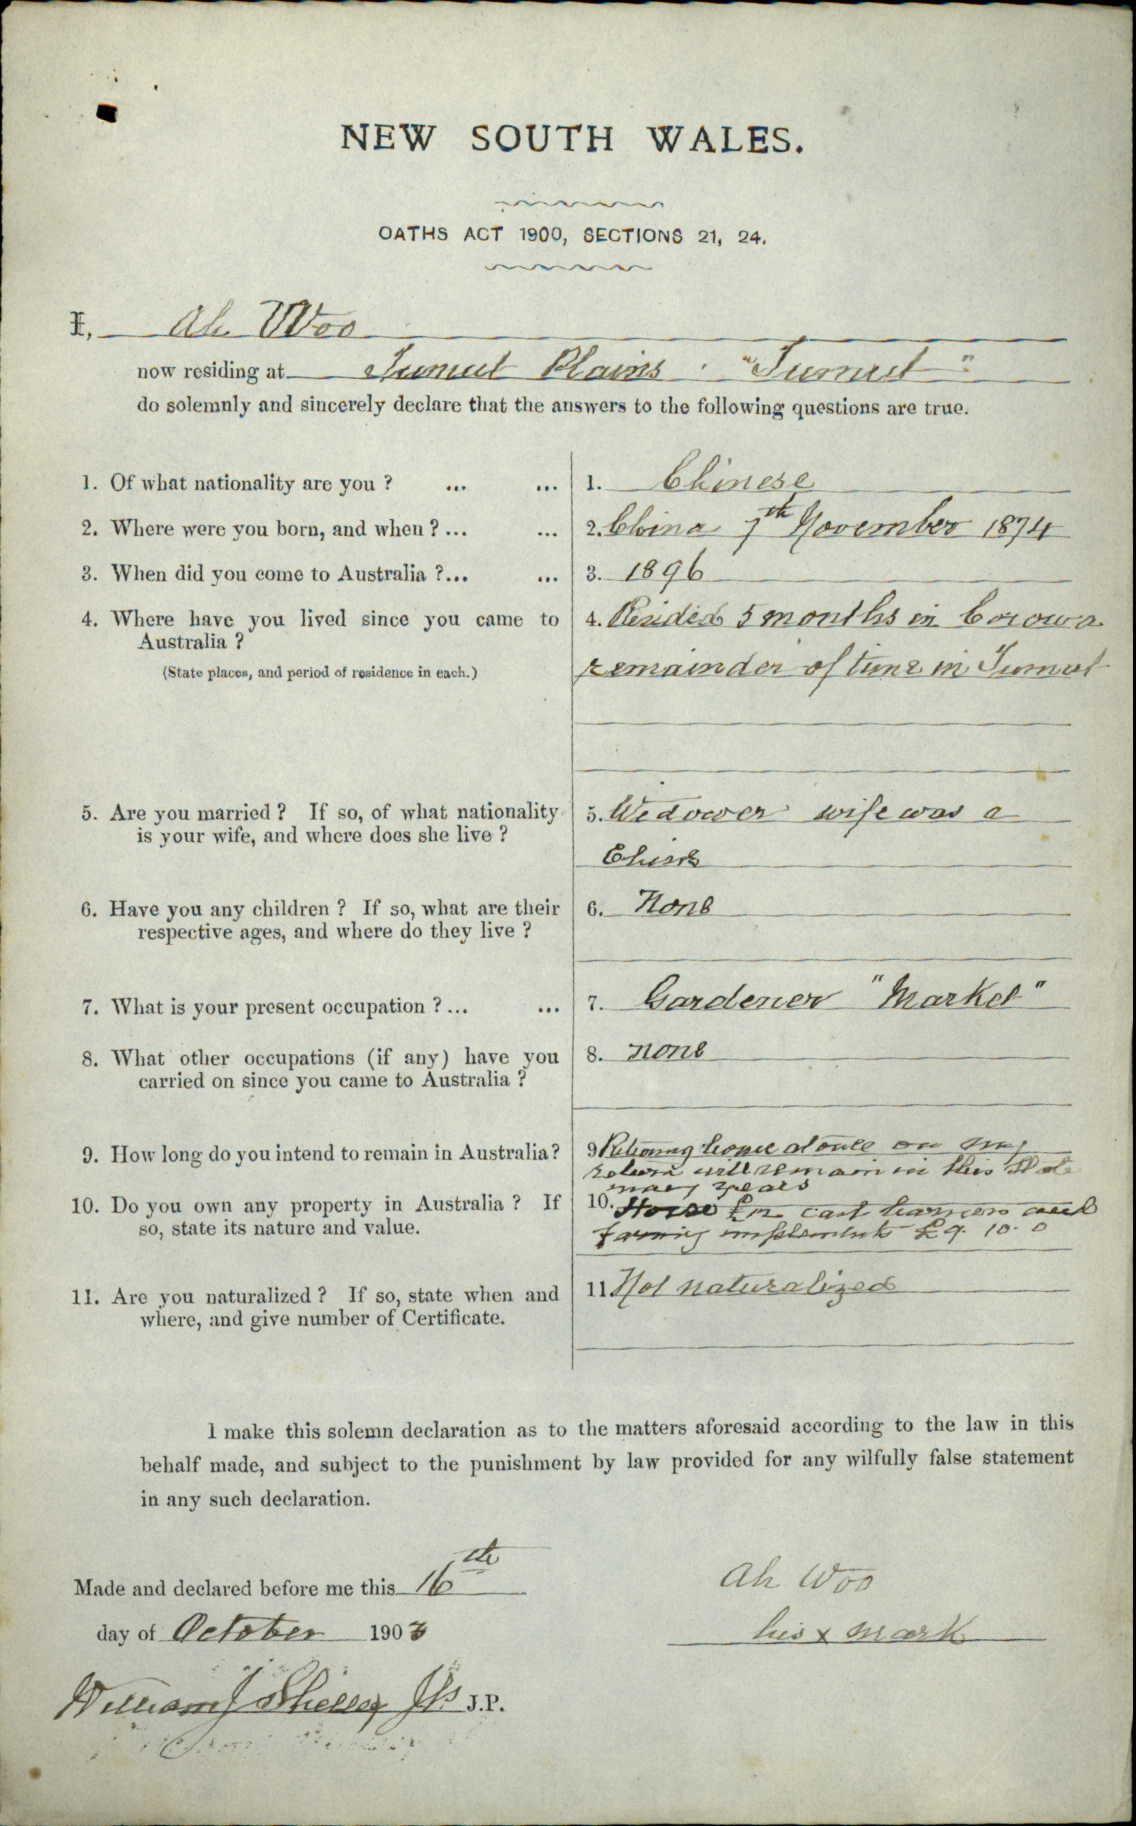 NEW SOUTH WALES.
OATHS ACT 1900, SECTIONS 21, 24.
I, Ah Woo
now residing at Tumut Plains . "Tumut"
do solemnly and sincerely declare that the answers to the following questions are true.
1. Of what nationality are you ? ... ... 1. Chinese
2. Where were you born, and when ? ... ... 2. China 7th November 1874
3. When did you come to Australia ?... ... 3. 1896
4. Where have you lived since you came to 4. Resided 5 months in Corowa
Australia ? remainder of time in Tumut
(State places, and period of residence in each.)
5. Are you married ? If so, of what nationality 5. Widower wife was a
is your wife, and where does she live ? Chinese
6. Have you any children ? If so, what are their 6. None
respective ages, and where do they live ?
7. What is your present occupation ? ... ... 7. Gardener "Market"
8. What other occupations (if any) have you 8. none
carried on since you came to Australia ?
9. How long do you intend to remain in Australia? 9 home at once on my
return will remain in this State
many years
10. Do you own any property in Australia ? If 10. Horse £12 cart harness and
so, state its nature and value. farming implements £9. 10. 0
11. Are you naturalized ? If so, state when and 11. Not naturalized
where, and give number of Certificate.
I make this solemn declaration as to the matters aforesaid according to the law in this
behalf made, and subject to the punishment by law provided for any wilfully false statement
in any such declaration.
Made and declared before me this 16th Ah Woo
day of October 1903 his x mark
William J Shelley JP J.P.